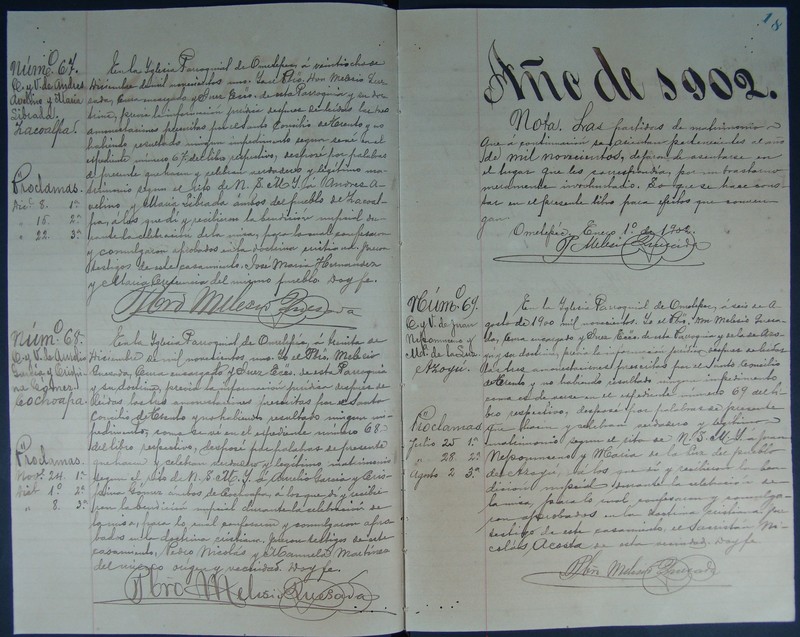 Núm.º 67.
C. y V. de Andrés
Avelino y María
Librada.
Zacoalpa.
Proclamas.
Dic.e 8. 1ª
" 15. 2ª
" 22. 3ª
En la Yglesia Parroquial de Ometepec, á veintiocho de
Diciembre de mil novecientos uno. Yo el Pbro. Don Melesio Que-
sada, Cura encargado y Juez Ecco. de esta Parroquia y su doc-
trina, previa la información jurídica después de leidas las tres
amonestaciones prescritas por el Santo Concilio de Trento y no
habiendo resultado ningun impedimento segun consta en el
espediente número 67 del libro respectivo, desposé por palabras
de presente que hacen y celebran verdadero y legítimo ma-
trimonio segun el rito de N. S. M. Y. á Andrés A-
velino, y María Librada ambos del pueblo de Zacoal-
pa, á los que dí y recibieron la bendición nupcial du-
rante la celebración de la misa, para lo cual confesaron
y comulgaron aprobados en la doctrina cristiana. Fueron
testigos de este casamiento. José María Hernandez
y María del mismo pueblo. Doy fe.
Pbro Melesio Quesada
Núm.º 68.
C. y V. de Aurelio
García y Crispi-
na Gómez.
Cochoapa.
Proclamas.
Nov. 24. 1ª
Dic.e 1º 2ª
" 8. 3ª
En la Yglesia Parroquial de Ometepec, á treinta de
Diciembre de mil novecientos uno. Yo el Pbro. Melesio
Quesada, Cura encargado y Juez Ecco. de esta Parroquia
y su doctrina, previa la información jurídica después de
leidas las tres amonestaciones prescritas por el Santo
Concilio de Trento y no habiendo resultado ningun im-
pedimento, como se vé en el espediente número 68
del libro respectivo, desposé por palabras de presente
que hacen y celebran verdadero y legítimo matrimonio
segun el rito de N. S. M. Y. á Aurelio García y Cris-
pina Gómez ambos de Cochoapa, á los que dí y recibie-
ron la bendición nupcial durante la celebración de
la misa, para lo cual confesaron y comulgaron apro-
bados en la doctrina cristiana. Fueron testigos de este
casamiento, Pedro Nicolás y Manuela Martínez
del mismo origen y vecindad. Doy fe.
Pbro Melesio Quesada
18
Año de 1902.
Nota. Las partidas de matrimonio
que á continuación se asientan pertenecientes al año
de mil novecientos, dejaron de asentarse en
el lugar que les correspondía, por un trastorno
meramente involuntario. Lo que se hace cons-
tar en el presente libro para efectos que conven-
gan.
Ometepec, Enero 1º de 1902.
P. Melesio Quesada
Núm.º 69.
C. y V. de Juan
Nepomuceno y
Mª. de la Luz.
Azoyú.
Proclamas
Julio 25 1ª
" 28 2ª
Agosto 2 3ª
En la Yglesia Parroquial de Ometepec, á seis de A-
gosto de 1900 mil novecientos. Yo el Pbro. Don Melesio Quesa-
da, Cura encargado y Juez Ecco. de esta Parroquia y de la de Azo-
yú y su doctrina, previa la información jurídica, despues de leidas
las tres amonestaciones prescritas por el Santo Concilio
de Trento y no habiendo resultado ningun impedimento
como es de verse en el espediente número 69 del li-
bro respectivo, desposé por palabras de presente
que hacen y celebran verdadero y legítimo
matrimonio segun el rito de N. S. M. Y. á Juan
Nepomuceno y María de la Luz del pueblo
de Azoyú, á los que dí y recibieron la ben-
dición nupcial durante la celebración de
la misa, para lo cual confesaron y comulga-
ron aprobados en la doctrina cristiana, fué
testigo de este casamiento, el Sacristán Ni-
colás Acosta de esta vecindad. Doy fe
Pbro Melesio Quesada